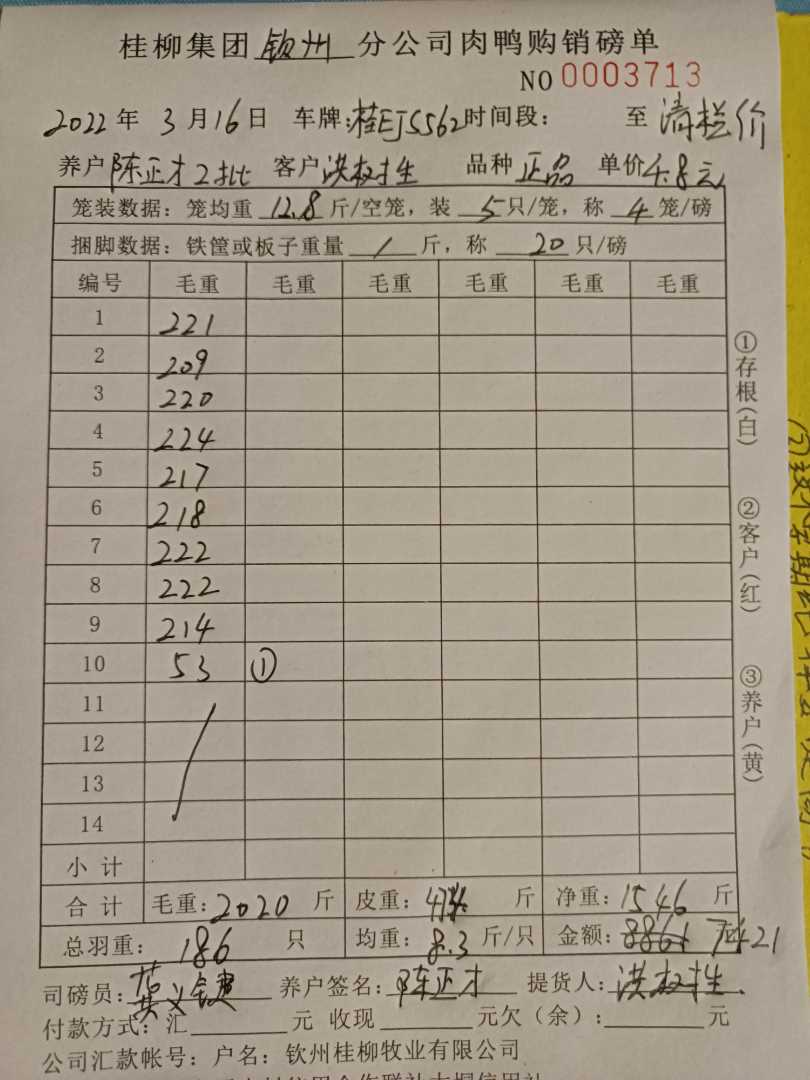 桂柳集团 钦州 分公司肉鸭购销磅单
NO 0003713
2022年 3月16日 车牌:桂EJ5562 时间段: 至 清栏价
养户 陈正才2批 客户 洪权挂 品种 正品 单价 4.8元
笼装数据:笼均重 12.8 斤/空笼,装 5 只/笼,称 4 笼/磅
捆脚数据:铁筐或板子重量 1 斤,称 20 只/磅
编号 毛重 毛重 毛重 毛重 毛重 毛重
1 221
2 209
3 220
4 224
5 217
6 218
7 222
8 222
9 214
10 53 ①
11
12
13
14
小计
合计 毛重:2020 斤 皮重: 斤 净重:1546 斤
总羽重: 186 只 均重: 8.3 斤/只 金额: 8861 7421
司磅员: 养户签名:陈正才 提货人:洪权挂
付款方式:汇 元 收现 元欠(余): 元
公司汇款帐号:户名:钦州桂柳牧业有限公司
①存根(白)
②客户(红)
③养户(黄)